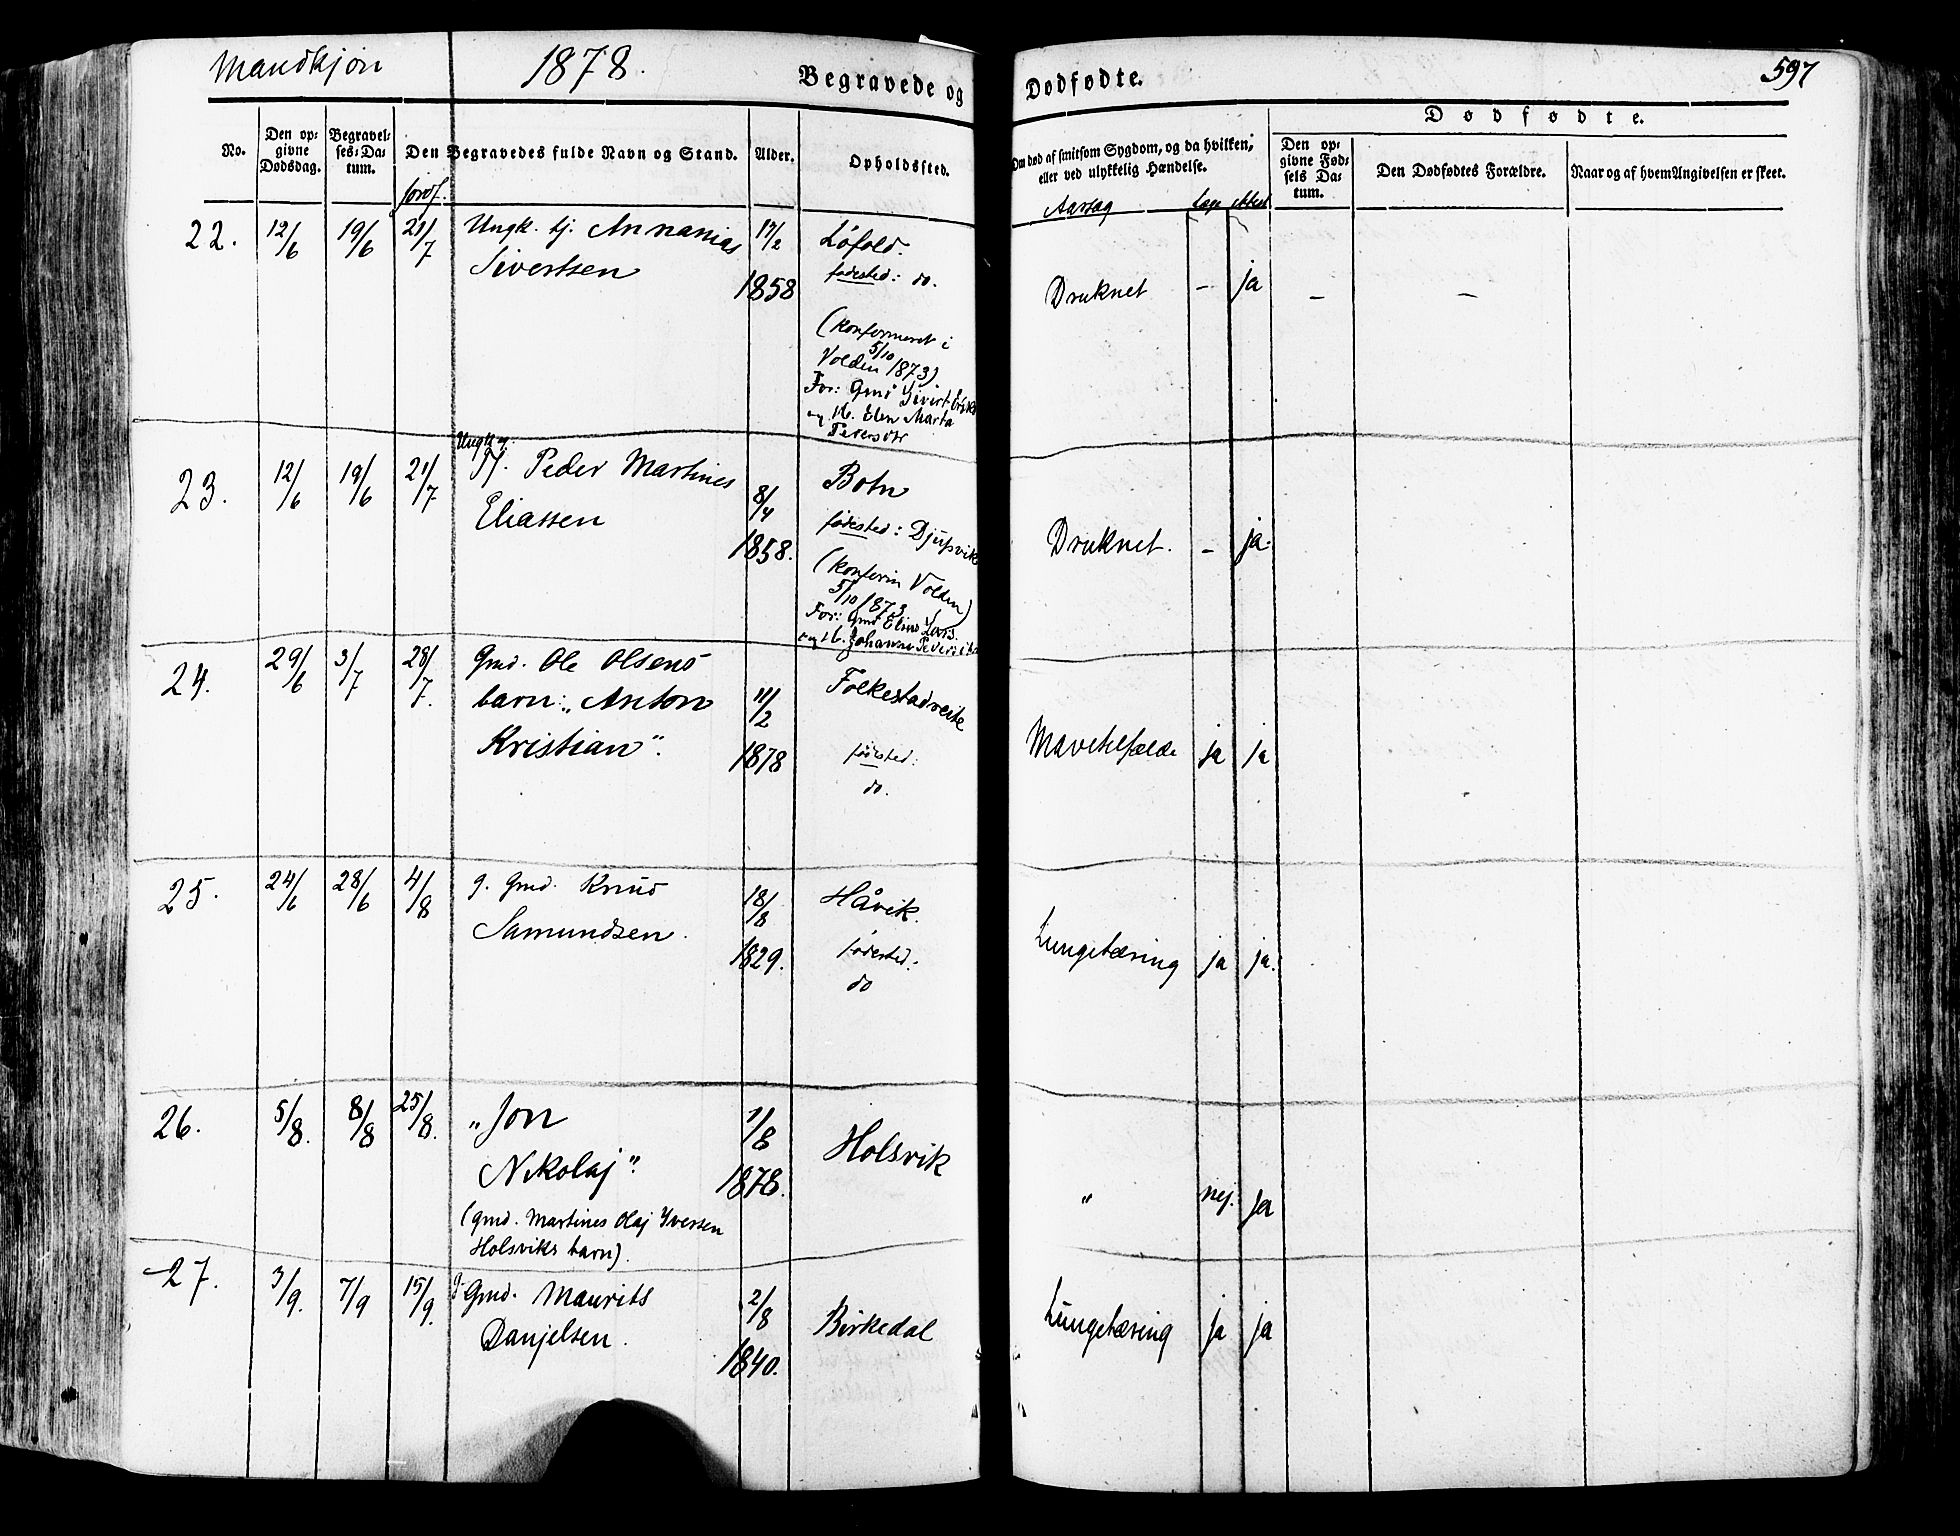 Mandkjøn 1878. Begravede og Dødfødte. 597
Dødfødte.
No. Den opgivne Dødsdag. Begravelses-Datum. Den Begravedes fulde Navn og Stand. Alder. Opholdssted. Om død af smitsom Sygdom, og da hvilken; eller ved ulykkelig Hændelse. Den opgivne Fødsels Datum. Den Dødfødtes Forældre. Naar og af hvem Angivelsen er skeet.
Jordf. Aarsag Læge Attest
22. 12/6 19/6 21/7 Ungk. tj. Annanias 17/2 Løfold.
Sivertsen 1858 fødested: do. Druknet - ja - -
(konfirmeret i
5/10
Volden 1873)
For: Gmd Sivert
og H. Elen Marta
Pedersdtr
Ungk. tj.
23. 12/6 19/6 21/7 Peder Martines 8/4 Botn
Eliassen 1858. fødested: Djupvik Druknet. - ja.
(konfer in Volden)
5/10 1873
For: Gmd Elias
og H. Johanne
24. 29/6 3/7 28/7. Gmd. Ole Olsens
barn: „Anton 11/2 Folkestadreite
Kristian". 1878 fødested: Mavetilfælde ja ja
do.
25. 24/6 28/6 4/8 g. Gmd. Knud 18/8 Håvik.
Samundsen. 1829. fødested: Lungetæring ja ja.
do
26. 5/8. 8/8 25/8. „Jon 1/8 Holsvik
Nikolaj". 1878. " nej. ja
(Gmd. Martines Olaj Iversen
Holsviks barn).
27. 3/9. 7/9 15/9. g. Gmd. Maurits 2/8 Birkedal
Danjelsen. 1840. Lungetæring ja ja